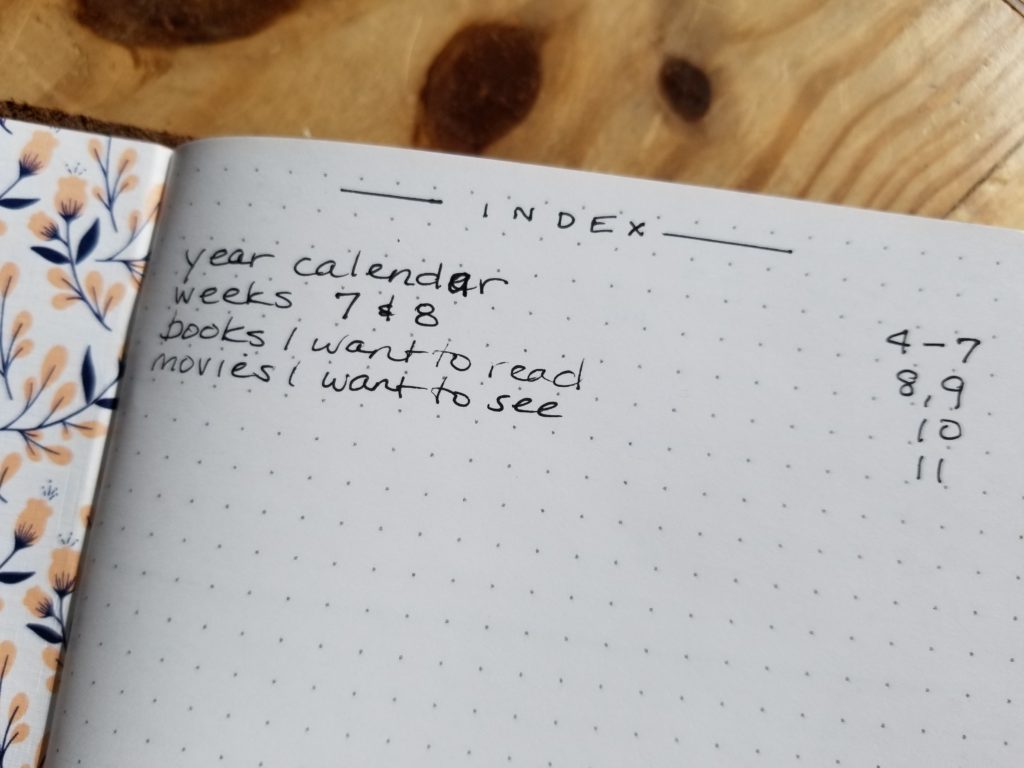 INDEX
year calendar 4-7
weeks 7 & 8 8,9
books I want to read 10
movies I want to see 11